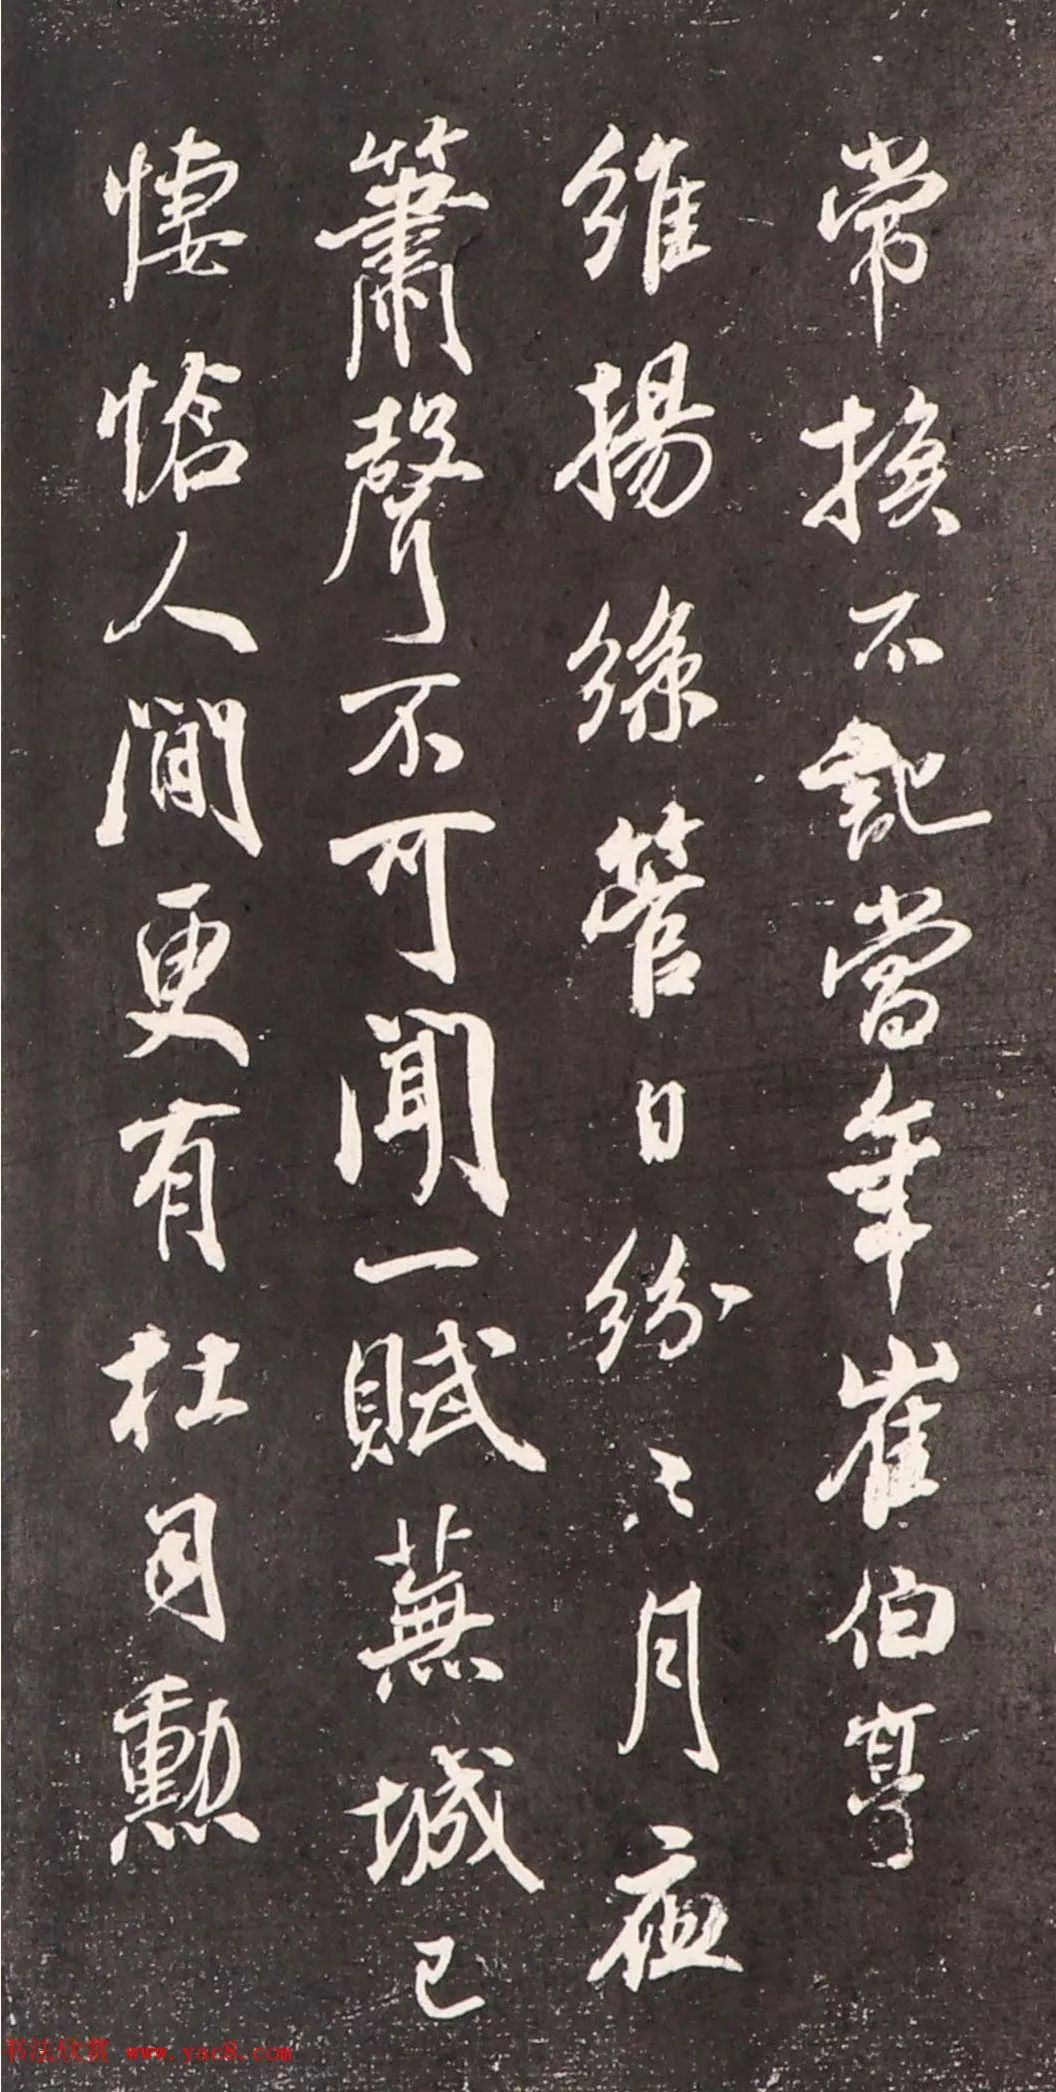 常換不記當年崔伯亨
維揚絲管日紛〻月夜
簫聲不可聞一賦蕪城已
悽愴人間更有杜司勳
书法欣赏 www.yac8.com